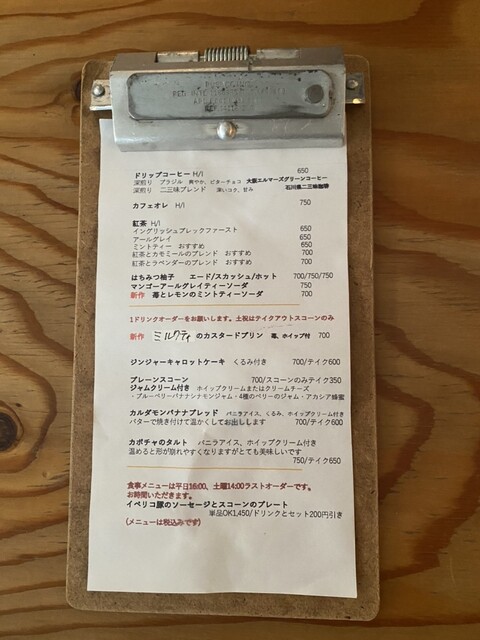 ドリップコーヒー H/I 650
深煎り ブラジル 爽やか、ビターチョコ 大阪エルマーズグリーンコーヒー
深煎り 二三味ブレンド 深いコク、甘み 石川県二三味珈琲
カフェオレ H/I 750
紅茶 H/I
イングリッシュブレックファースト 650
アールグレイ 650
ミントティー おすすめ 650
紅茶とカモミールのブレンド おすすめ 700
紅茶とラベンダーのブレンド おすすめ 700
はちみつ柚子 エード/スカッシュ/ホット 700/750/750
マンゴーアールグレイティーソーダ 750
新作 苺とレモンのミントティーソーダ 700
1ドリンクオーダーをお願いします。土祝はテイクアウトスコーンのみ
新作 ミルクティ のカスタードプリン 苺、ホイップ付 700
ジンジャーキャロットケーキ くるみ付き 700/テイク600
プレーンスコーン 700/スコーンのみテイク350
ジャムクリーム付き ホイップクリームまたはクリームチーズ
・ブルーベリーバナナシナモンジャム・4種のベリーのジャム・アカシア蜂蜜
カルダモンバナナブレッド バニラアイス、くるみ、ホイップクリーム付き
バターで焼き付けて温かくしてお出しします 700/テイク600
カボチャのタルト バニラアイス、ホイップクリーム付き
温めると形が崩れやすくなりますがとても美味しいです
750/テイク650
食事メニューは平日16:00、土曜14:00ラストオーダーです。
イベリコ豚のソーセージとスコーンのプレート
単品OK1,450/ドリンクとセット200円引き
(メニューは税込みです)